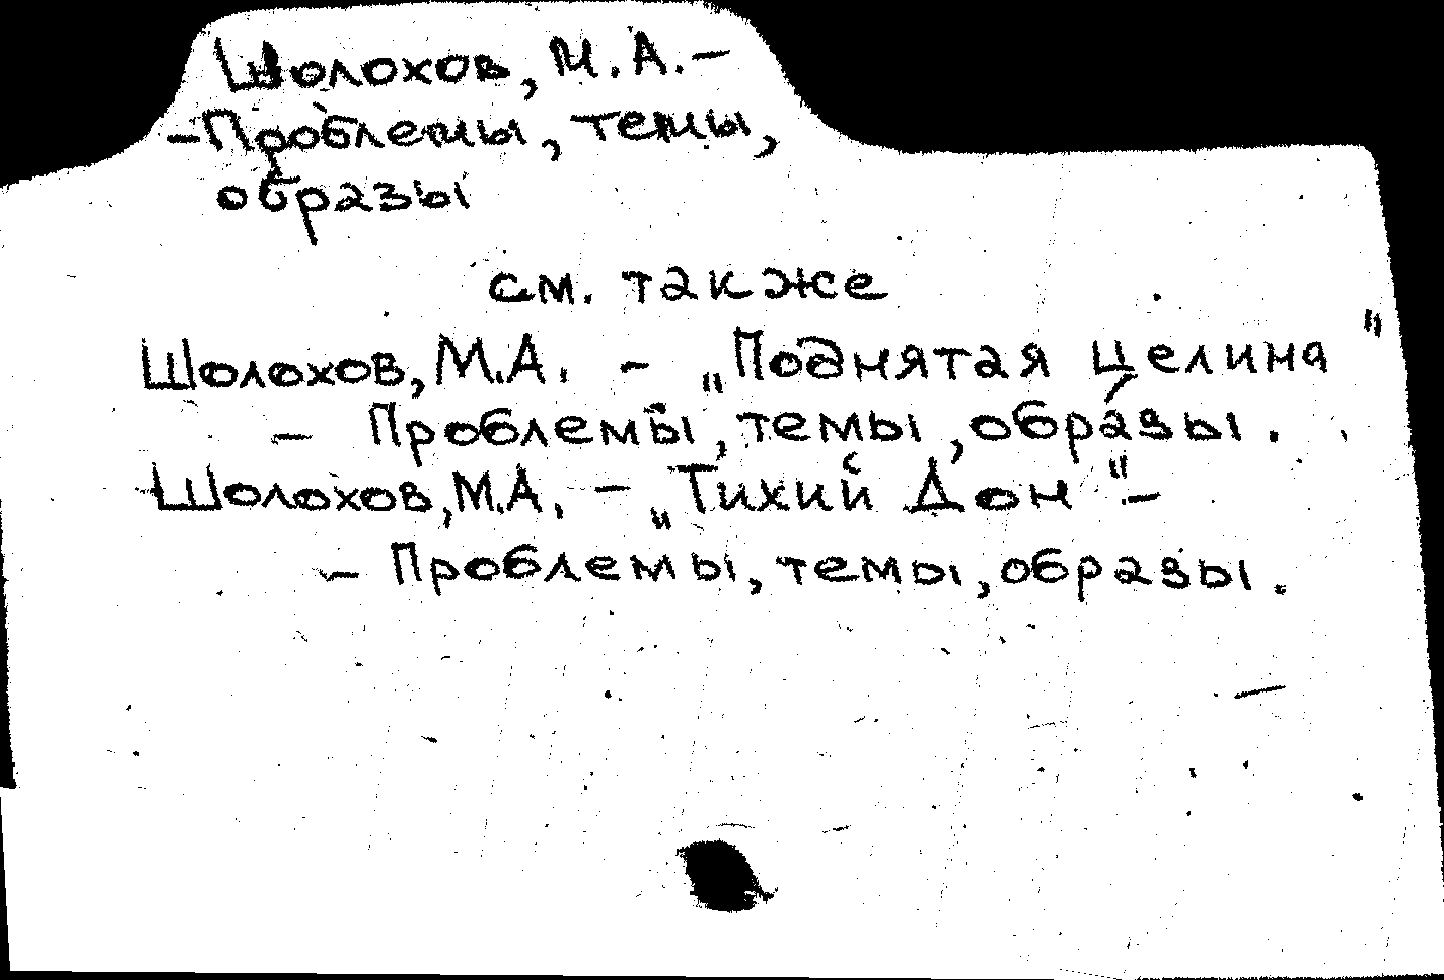 Шолохов, М.А. –
– Проблемы, темы,
образы
см. также
Шолохов, М.А. – „Поднятая целина"
– Проблемы, темы, образы.
Шолохов, М.А. – „Тихий Дон" –
– Проблемы, темы, образы.